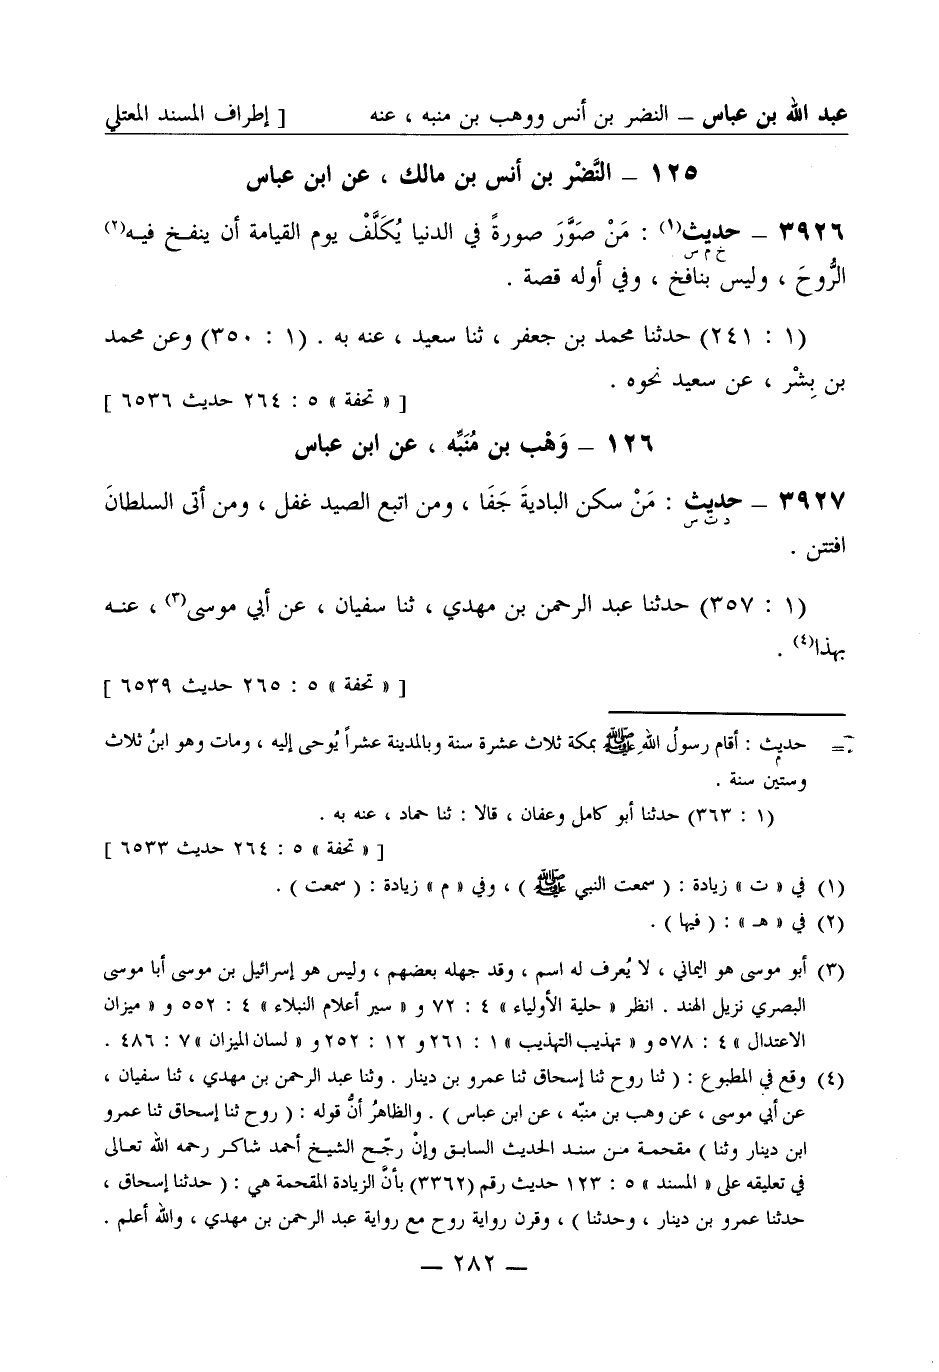 عبد الله بن عباس – النضر بن أنس ووهب بن منبه ، عنه [ إطراف المسند المعتلي
١٢٥ – النَّضْر بن أنس بن مالك ، عن ابن عباس
٣٩٢٦ – حديث(١) : مَنْ صَوَّرَ صورةً في الدنيا يُكَلَّفْ يوم القيامة أن ينفخ فيه(٢)
خ م س
الرُّوحَ ، وليس بنافخ ، وفي أوله قصة .
(١ : ٢٤١) حدثنا محمد بن جعفر ، ثنا سعيد ، عنه به . (١ : ٣٥٠) وعن محمد
بن بِشْر ، عن سعيد نحوه .
[ « تحفة » ٥ : ٢٦٤ حديث ٦٥٣٦ ]
١٢٦ – وَهْب بن مُنَبِّه ، عن ابن عباس
٣٩٢٧ – حديث : مَنْ سكن الباديةَ جَفَا ، ومن اتبع الصيد غفل ، ومن أتى السلطانَ
د ت س
افتتن .
(١ : ٣٥٧) حدثنا عبد الرحمن بن مهدي ، ثنا سفيان ، عن أبي موسى(٣) ، عنه
بهذا(٤) .
[ « تحفة » ٥ : ٢٦٥ حديث ٦٥٣٩ ]
= حديث : أقام رسولُ اللهِ ﷺ بمكة ثلاث عشرة سنة وبالمدينة عشراً يُوحى إليه ، ومات وهو ابنُ ثلاث
م
وستين سنة .
(١ : ٣٦٣) حدثنا أبو كامل وعفان ، قالا : ثنا حماد ، عنه به .
[ « تحفة » ٥ : ٢٦٤ حديث ٦٥٣٣ ]
(١) في « ت » زيادة : ( سمعت النبي ﷺ ) ، وفي « م » زيادة : ( سمعت ) .
(٢) في « هـ » : ( فيها ) .
(٣) أبو موسى هو اليماني ، لا يُعرف له اسم ، وقد جهله بعضهم ، وليس هو إسرائيل بن موسى أبا موسى
البصري نزيل الهند . انظر « حلية الأولياء » ٤ : ٧٢ و « سير أعلام النبلاء » ٤ : ٥٥٢ و « ميزان
الاعتدال » ٤ : ٥٧٨ و « تهذيب التهذيب » ١ : ٢٦١ و ١٢ : ٢٥٢ و « لسان الميزان » ٧ : ٤٨٦ .
(٤) وقع في المطبوع : ( ثنا روح ثنا إسحاق ثنا عمرو بن دينار . وثنا عبد الرحمن بن مهدي ، ثنا سفيان ،
عن أبي موسى ، عن وهب بن منبّه ، عن ابن عباس ) . والظاهرُ أنَّ قوله : ( روح ثنا إسحاق ثنا عمرو
ابن دينار وثنا ) مقحمة من سند الحديث السابق وإنْ رجّح الشيخ أحمد شاكر رحمه الله تعالى
في تعليقه على « المسند » ٥ : ١٢٣ حديث رقم (٣٣٦٢) بأنَّ الزيادة المقحمة هي : ( حدثنا إسحاق ،
حدثنا عمرو بن دينار ، وحدثنا ) ، وقرن رواية روح مع رواية عبد الرحمن بن مهدي ، والله أعلم .
– ٢٨٢ –